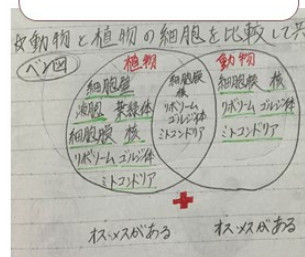 動物と植物の細胞を比較して
ベン図
植物
動物
細胞壁
液胞 葉緑体
細胞膜 核
リボソーム ゴルジ体
ミトコンドリア
細胞膜
核
リボソーム
ゴルジ体
ミトコンドリア
細胞膜 核
リボソーム ゴルジ体
ミトコンドリア
オス・メスがある
オス・メスがある